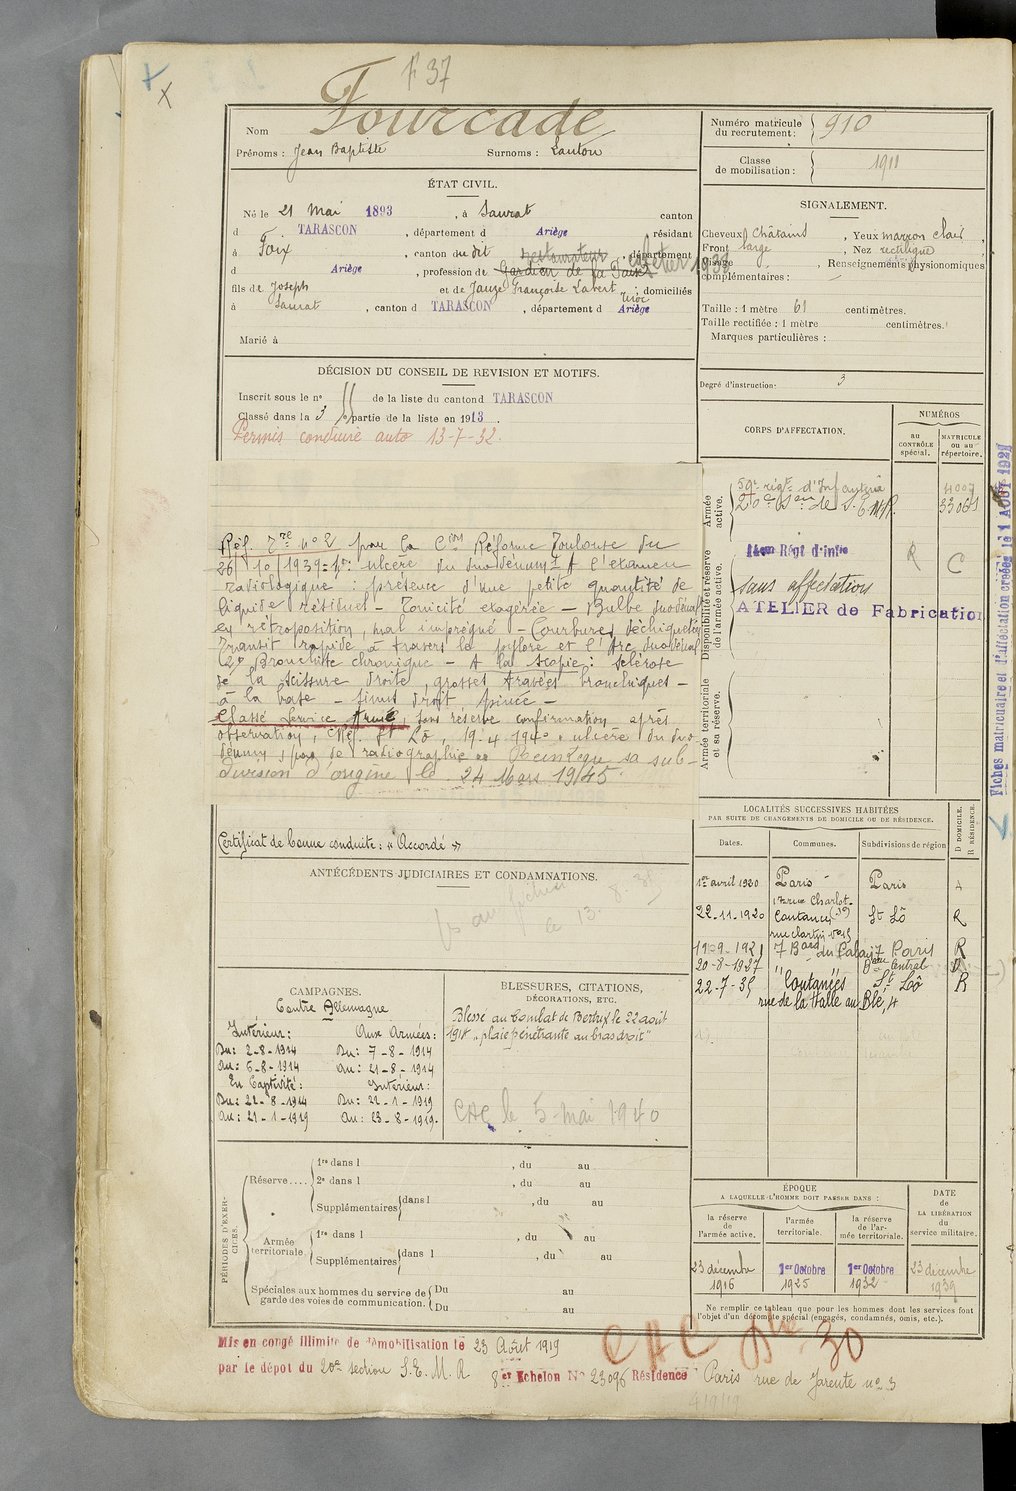 F 37
Nom Fourcade
Prénoms : Jean Baptiste Surnoms : Lauton
Numéro matricule du recrutement : 910
Classe de mobilisation : 1911
ÉTAT CIVIL.
Né le 21 Mai 1893, à Saurat canton
d TARASCON, département d Ariège, résidant
à Foix, canton du dit restaurateur, département
d Ariège, profession de Gardien de la Paix cafetier 1938
fils de Joseph et de Jauze Françoise ; domiciliés
à Saurat, canton d TARASCON, département d Ariège
Marié à
SIGNALEMENT.
Cheveux Châtains, Yeux marron clair,
Front large, Nez rectiligne
Visage, Renseignements physionomiques
complémentaires :
Taille : 1 mètre 61 centimètres.
Taille rectifiée : 1 mètre centimètres.
Marques particulières :
Degré d'instruction : 3
DÉCISION DU CONSEIL DE REVISION ET MOTIFS.
Inscrit sous le n° 11 de la liste du canton d TARASCON
Classé dans la 3 e partie de la liste en 1913.
Permis conduire auto 13-7-32.
CORPS D'AFFECTATION.
NUMÉROS
au contrôle spécial.
MATRICULE ou au répertoire.
Armée active.
59e régt d'Infanterie
20e Son de S.E.M.R.
Disponibilité et réserve de l'armée active.
Régt d'infie
R C
Sans affectation
ATELIER de Fabrication
Armée territoriale et sa réserve.
Fiches matriculaire et d'affectation créées le 1 AOUT 192
Réf. Tre n° 2 par la Cion Réforme Toulouse du
26 10 1939 = 1° ulcère du duodénum A l'examen
radiologique : présence d'une petite quantité de
liquide résiduel - Tonicité exagérée - Bulbe duodénal
en rétroposition, mal imprégné - Courbures déchiquetées
Transit rapide à travers le pylore et l'Arc duodénal
(2° Bronchite chronique - A la scopie : sclérose
de la scissure droite, grosses travées bronchiques -
à la base - sinus droit pincé -
Classé Service Armé, sous réserve confirmation après
observation, Réf. St Lô, 19-4 1940. ulcère du duo-
dénum, pas de radiographie Réintègre sa sub-
division d'origine le 24 Mars 1945.
Certificat de bonne conduite : « Accordé »
ANTÉCÉDENTS JUDICIAIRES ET CONDAMNATIONS.
LOCALITÉS SUCCESSIVES HABITÉES
PAR SUITE DE CHANGEMENTS DE DOMICILE OU DE RÉSIDENCE.
Dates. Communes. Subdivisions de région D DOMICILE. R RÉSIDENCE.
1er avril 1920 Paris Paris
rue Charlot
22-11-1920 Coutances St Lô R
19-9-1921 7 Bard du Palais Paris R
20-8-1927 " Bau Central
22-7-35 Coutances St Lô R
rue de la Halle au Blé, 4
CAMPAGNES.
Contre Allemagne
Intérieur : Aux Armées :
Du : 2-8-1914 Du : 7-8-1914
Au : 6-8-1914 Au : 21-8-1914
En Captivité : Intérieur :
Du : 22-8-1914 Du : 22-1-1919
Au : 21-1-1919 Au : 23-8-1919.
BLESSURES, CITATIONS,
DÉCORATIONS, ETC.
Blessé au Combat de Bertrix le 22 août
1914 "plaie pénétrante au bras droit"
CAC le 5 mai 1940
PÉRIODES D'EXERCICES.
Réserve.... 1re dans l , du au
2e dans l , du au
Supplémentaires dans l , du au
Armée territoriale. 1re dans l , du au
Supplémentaires dans l , du au
Spéciales aux hommes du service de garde des voies de communication. Du au
Du au
ÉPOQUE
A LAQUELLE L'HOMME DOIT PASSER DANS :
la réserve de l'armée active. l'armée territoriale. la réserve de l'armée territoriale. DATE de LA LIBÉRATION du service militaire.
23 décembre 1916 1er Octobre 1925 1er Octobre 1932 23 décembre 1939
Ne remplir ce tableau que pour les hommes dont les services font
l'objet d'un décompte spécial (engagés, condamnés, omis, etc.).
Mis en congé illimité de démobilisation le 23 Août 1919
par le dépôt du 20e section S.E.M.R 8er Echelon No 23096 Résidence Paris rue de Jarente no 3
CAC 30